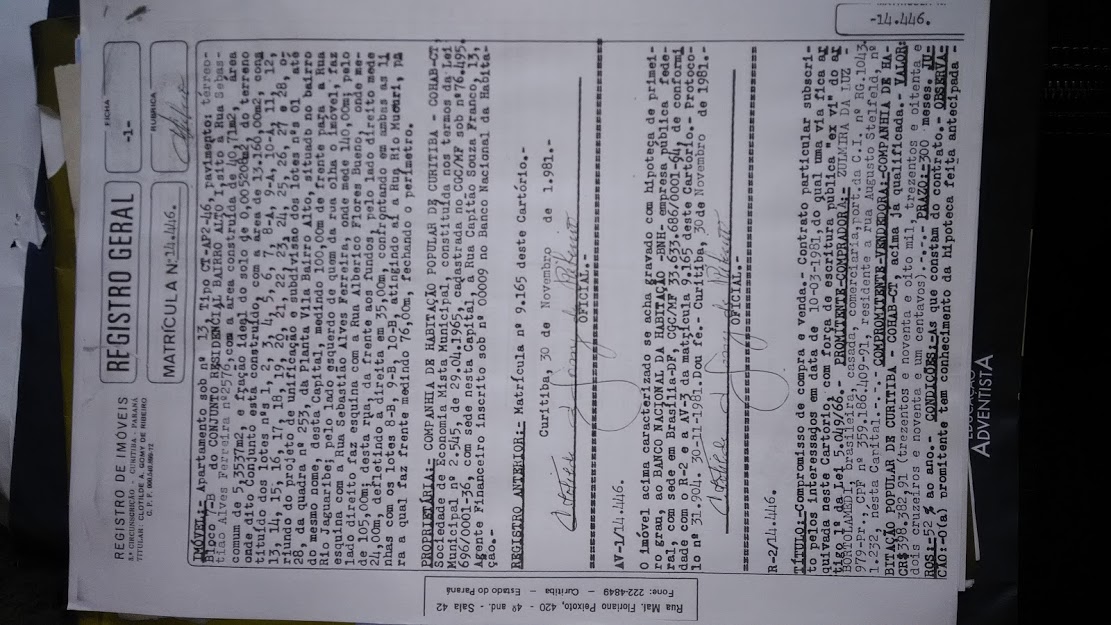 REGISTRO DE IMÓVEIS
CIRCUNSCRIÇÃO - CURITIBA - PARANÁ
TITULAR: CLOTILDE A. GOMY DE RIBEIRO
REGISTRO GERAL
MATRÍCULA Nº 14.446.
FICHA
-1-
RUBRICA
IMÓVEL:- Apartamento sob nº 13 Tipo CT-AP2-46, pavimento: térreo-
Bloco 7-B do CONJUNTO RESIDENCIAL BAIRRO ALTO I, sito a Rua Sebas-
tião Alves Ferreira nº2576; com a área construída de 40,71m2, área
comum de 5,3537m2, e fração ideal do solo de 0,005208m2, do terreno
onde o dito Conjunto está construído, com a área de 13.160,00m2, cons
tituído dos lotes nºs 1, 2, 3, 4, 5, 6, 7, 8-A, 9-A, 10-A, 11, 12,
13, 14, 15, 16, 17, 18, 19, 20, 21, 22, 23, 24, 25, 26, 27 e 28, o-
riundo do projeto de unificação e subdivisão dos lotes nºs 01 até
28, da quadra nº 253, da Planta Vila Bairro Alto, situado no bairro
do mesmo nome, desta Capital, medindo 100,00m de frente para a Rua
Rio Jaguaribe; pelo lado esquerdo de quem da rua olha o imóvel, faz
esquina com a Rua Sebastião Alves Ferreira, onde mede 140,00m; pelo
lado direito faz esquina com a Rua Alberico Flores Bueno, onde me-
de 105,00m; desta rua da frente aos fundos, pelo lado direito mede
24,00m, defletindo a direita em 35,00m, confrontando em ambas as li
nhas com os lotes 8-B, 9-B, 10-B, atingindo aí a Rua Rio Mucuri, pa
ra a qual faz frente medindo 76,00m, fechando o perímetro.
PROPRIETÁRIA:- COMPANHIA DE HABITAÇÃO POPULAR DE CURITIBA - COHAB-CT,
Sociedade de Economia Mista Municipal, constituída nos termos da Lei
Municipal nº 2.545, de 29.04.1965, cadastrada no CGC/MF sob nº76.495.
696/0001-36, com sede nesta Capital, a Rua Capitão Souza Franco, 13,
Agente Financeiro inscrito sob nº 00009 no Banco Nacional da Habita-
ção.-
REGISTRO ANTERIOR:- Matrícula nº 9.165 deste Cartório.-
Curitiba, 30 de Novembro de 1.981.-
OFICIAL.-
AV-1/14.446.
O imóvel acima caracterizado se acha gravado com hipoteca de primei-
ro grau, ao BANCO NACIONAL DA HABITAÇÃO -BNH- empresa pública fede-
ral, com sede em Brasília-DF, CGC/MF 33.633.686/0001-94, de conformi
dade com o R-2 e a AV-3 da matrícula 9.165 deste Cartorio.- Protoco-
lo nº 31.904. 30-11-1981. Dou fé.- Curitiba, 30 de Novembro de 1981.-
OFICIAL.-
R-2/14.446.
TÍTULO:-Compromisso de compra e venda.- Contrato particular subscri-
to pelos interessados em data de 10-03-1981, do qual uma via fica ar
quivada neste cartório, com força de escritura pública "ex vi" do ar
tigo 1º da Lei 5.049/66.- PROMITENTE-COMPRADORA:- ZULMIRA DA LUZ
BORTOLAMEDI, brasileira, casada, comerciaria, port. da C.I. nº RG.1043.
979-Pr., CPF nº 359.186.409-91, residente a rua Augusto Stelfeld, nº
1.232, nesta Capital.-.-.- COMPROMITENTE-VENDEDORA:-COMPANHIA DE HA-
BITAÇÃO POPULAR DE CURITIBA - COHAB-CT, acima já qualificada.- VALOR:
CR$398.382,91 (trezentos e noventa e oito mil, trezentos e oitenta e
dois cruzeiros e noventa e um centavos).-.-.- PRAZO:-300 meses. JU-
ROS:-52 % ao ano.- CONDIÇÕES:-As que constam do contrato.- OBSERVA-
CÃO:-O(a) promitente tem conhecimento da hipoteca feita antecipada
-14.446.
Rua Mal. Floriano Peixoto, 420 - 4º and. - Sala 42
Fone: 222-4849 - Curitiba - Estado do Paraná
EDUCAÇÃO
ADVENTISTA